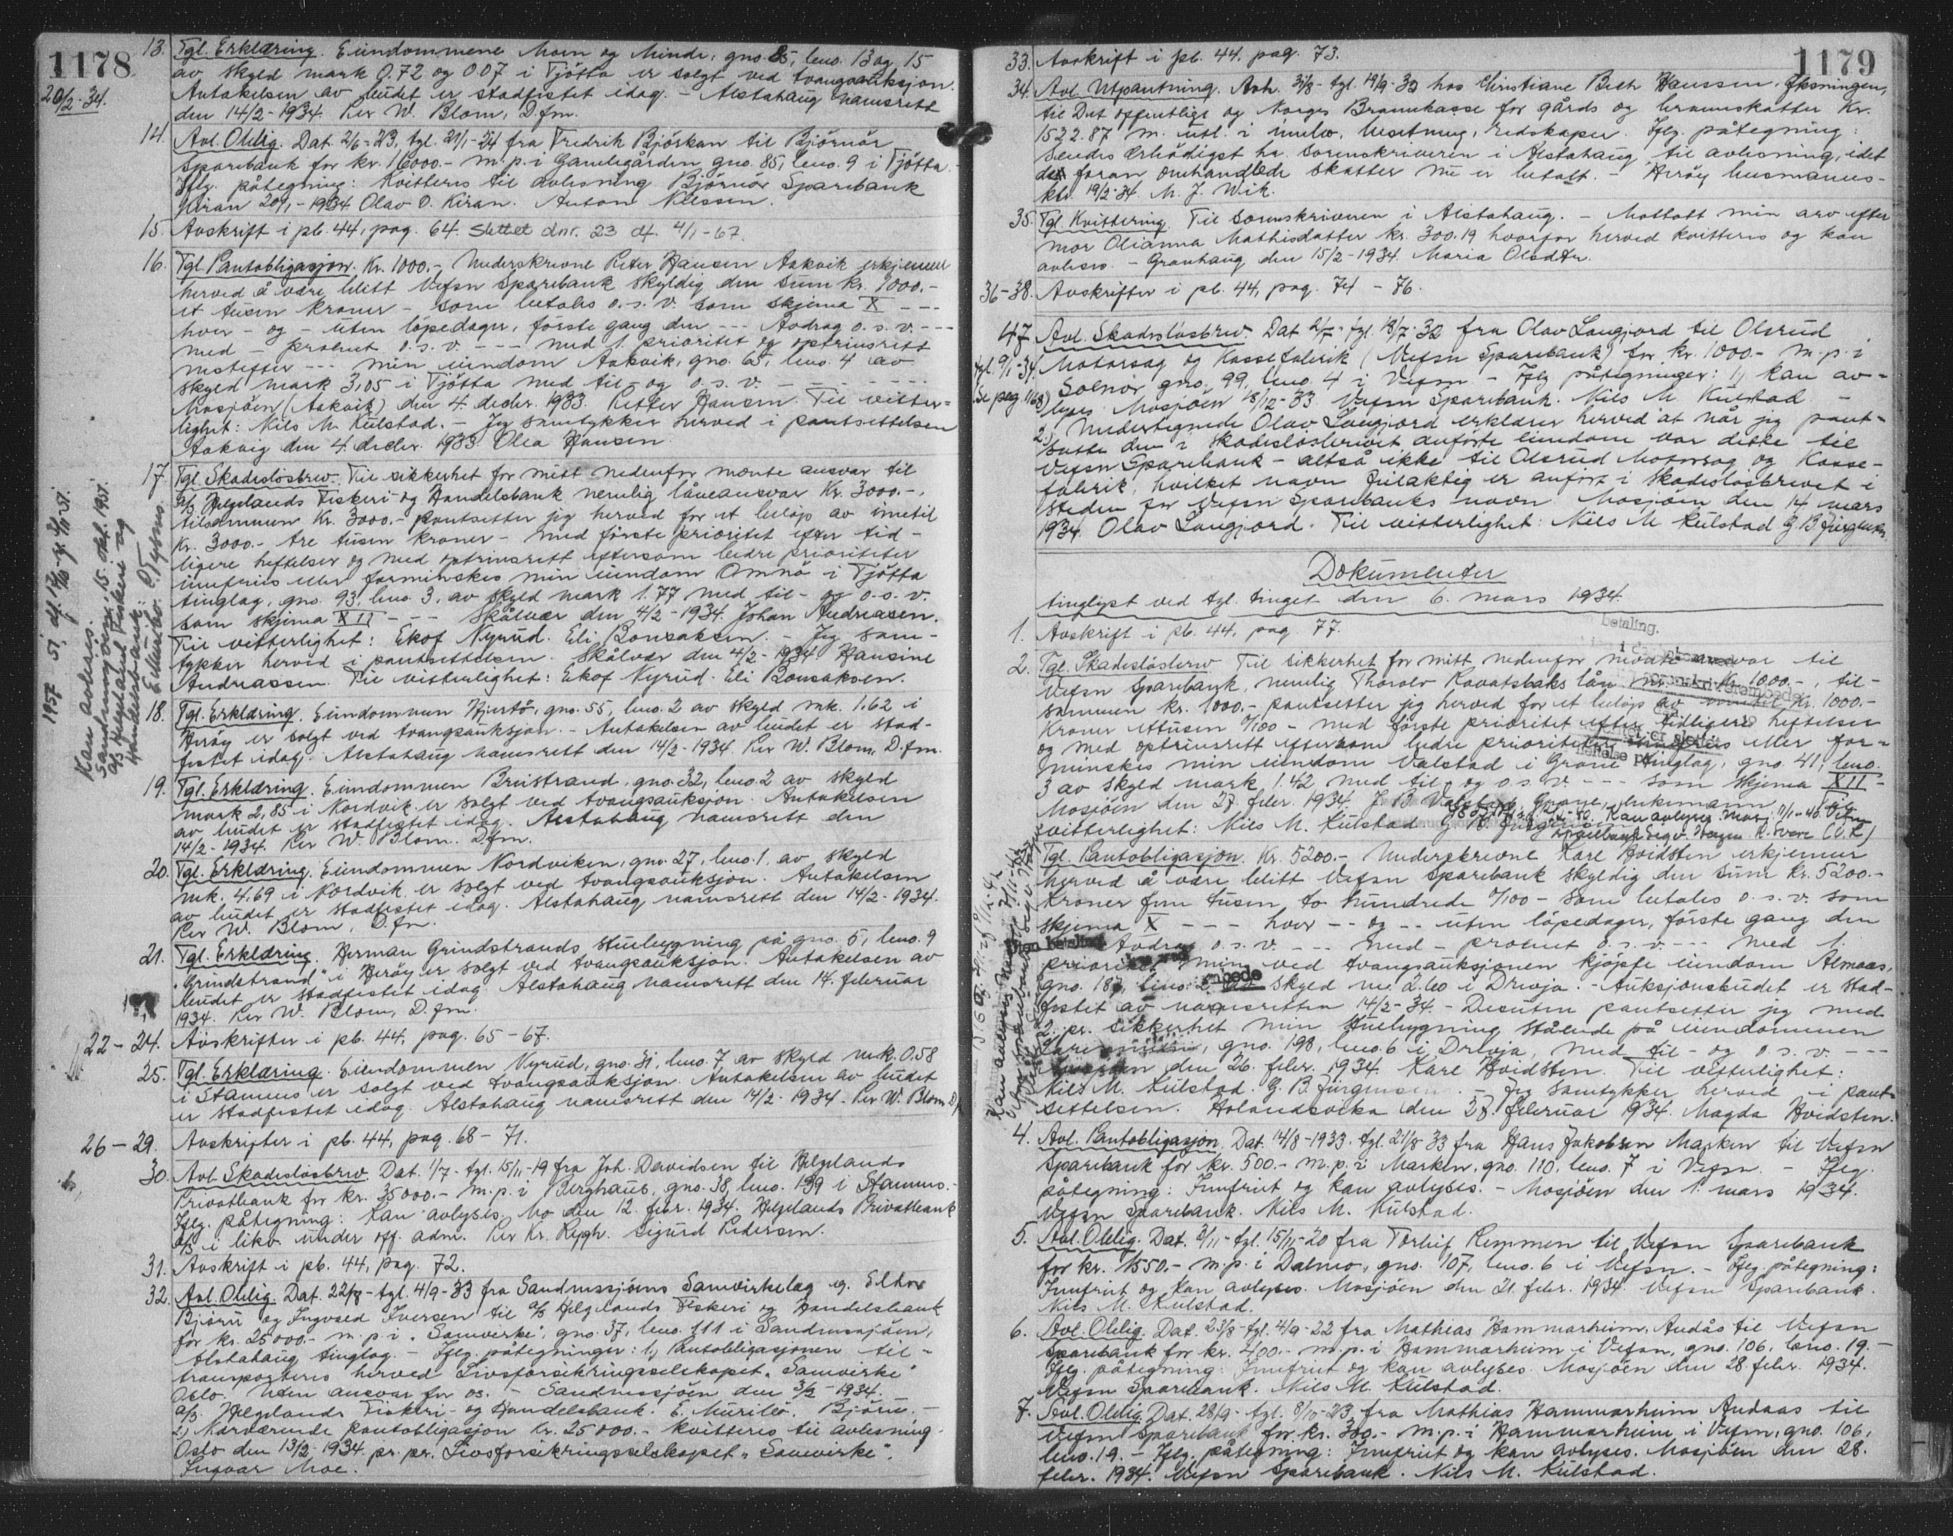 1178
20/2-34.
13. Tgl. Erklæring. Eiendommene Moen og Minde, gno 85, bno. 13 og 15
av skyld mark 0.72 og 0.07 i Tjøtta er solgt ved tvangsauksjon.
Antakelsen av budet er stadfestet idag. - Alstahaug namsrett
den 14/2-1934. Per W. Blom, D.fm.
14. Avl. Oblig. Dat. 2/6-23, tgl. 21/1-24 fra Fredrik Bjørkan til Bjørnør
Sparebank for kr. 16000.- m.p. i Gamlegården gno. 85, bno. 9 i Tjøtta.
Iflg. påtegning: Kvitteres til avlesning Bjørnør Sparebank
Kiran 20/1-1934 Olav O. Kiran. Anton Nilssen.
15. Avskrift i pb. 44, pag. 64. Slettet dnr. 23 d. 4/1-67.
16. Tgl. Pantobligasjon. Kr. 1000.- Underskrevne Peter Hansen Aakvik erkjenner
herved å være blitt Vefsn Sparebank skyldig den sum kr. 1000.-
et tusen kroner - som betales o.s.v. som skjema X - - -
hver - og - uten løpedager, første gang den --- Avdrag o.s.v. ---
med - procent o.s.v. --- med 1. prioritet og optrinsrett
nestefter --- min eiendom Aakvik, gno. 65, bno. 4 av
skyld mark 3,05 i Tjøtta med til- og o.s.v. - - - - -
Mosjøen (Aakvik) den 4. decbr. 1933. Petter Hansen. Til vitter-
lighet: Nils M. Kulstad. - Jeg samtykker herved i pantsettelsen
Aakvig den 4. decbr. 1933 Olea Hansen.
17. Tgl. Skadesløsbrev. Til sikkerhet for mitt nedenfor nevnte ansvar til
a/s Helgelands Fiskeri- og Handelsbank nemlig låneansvar Kr. 3000.-,
tilsammen Kr. 3000.- pantsetter jeg herved for et beløp av inntil
Kr. 3000.- tre tusen kroner - med første prioritet efter tid-
ligere heftelser og med optrinsrett eftersom bedre prioriteter
innfries eller forminskes min eiendom Omnø i Tjøtta
tinglag, gno. 93, bno 3, av skyld mark 1.77 med til- og o.s.v.
som skjema XII - - - Skålvær den 4/2-1934. Johan Andreasen.
Til vitterlighet: Ekof Nyrud. Eli Bonsaksen. - Jeg sam-
tykker herved i pantsettelsen. Skålvær den 4/2-1934 Hansine
Andreassen. Til vitterlighet: Ekof Nyrud. Eli Bonsaksen.
Kan avleses.
Sandnessjøen, 15. okt. 1951.
a/s Helgeland Fiskeri og
Handelsbank:
18. Tgl. Erklæring. Eiendommen Hjertø, gno. 55, bno. 2 av skyld mk. 1.62 i
Herøy er solgt ved tvangsauksjon. - Antakelsen av budet er stad-
festet idag. Alstahaug namsrett den 14/2-1934. Per W. Blom, D.fm.
19. Tgl. Erklæring. Eiendommen Breistrand, gno. 32, bno. 2 av skyld
mark 2,85 i Nordvik er solgt ved tvangsauksjon. Antakelsen
av budet er stadfestet idag. Alstahaug namsrett den
14/2-1934. Per W. Blom. D.fm.
20. Tgl. Erklæring. Eiendommen Nordviken, gno. 27, bno. 1, av skyld
mk. 4.69 i Nordvik er solgt ved tvangsauksjon. Antakelsen
av budet er stadfestet idag. Alstahaug namsrett den 14/2-1934.
Per W. Blom, D.fm.
21. Tgl. Erklæring. Herman Grindstrands stuebygning på gno. 5, bno. 9
"Grindstrand" i Herøy er solgt ved tvangsauksjon. Antakelsen av
budet er stadfestet idag. Alstahaug namsrett den 14. februar
1934. Per W. Blom, D.fm.
22-24. Avskrifter i pb. 44, pag. 65-67.
25. Tgl. Erklæring. Eiendommen Nyrud, gno. 31, bno. 7 av skyld mk. 0.58
i Stamnes er solgt ved tvangsauksjon. Antakelsen av budet
er stadfestet idag. Alstahaug namsrett den 14/2-1934. Per W. Blom
26-29. Avskrifter i pb. 44, pag. 68-71.
30. Avl. Skadesløsbrev. Dat. 1/7- tgl. 15/11-19 fra Joh. Davidsen til Helgelands
Privatbank for kr. 25000.- m.p. i Berghaug, gno. 38, bno. 139 i Stamnes.-
Iflg. påtegning: Kan avlyses. Mo den 12. febr. 1934. Helgelands Privatbank
a/s i likv. under off. adm. Per Kr. Rygh. Sigurd Pedersen.
31. Avskrift i pb. 44, pag. 72.
32. Avl. Oblig. Dat. 22/8- tgl. 4/9-33 fra Sandnessjøens Samvirkelag v.
Bjørn og Ingvold Iversen til a/s Helgelands Fiskeri og Handelsbank
for kr. 25000.- m.p. i "Samvirke", gno. 37, bno. 111 i Sandnessjøen,
Alstahaug tinglag. - Iflg. påtegninger: 1, Pantobligasjonen til-
transporteres herved Livsforsikringsselskapet "Samvirke"
Oslo. Uten ansvar for os. - Sandnessjøen den 3/2-1934.
a/s. Helgelands Fiskeri- og Handelsbank. E. Bjørn. -
2, Nærværende pantobligasjon kr. 25000.- kvitteres til avlesning.
Oslo den 13/2-1934. pr. pr. Livsforsikringsselskapet "Samvirke".
Ingvar Moe.
1179
33. Avskrift i pb. 44. pag. 73.
34. Avl. Utpantning. Avh. 31/8- tgl. 19/9-32 hos Christiane Beth Hanssen, Øksningen,
til Det offentlige og Norges Brannkasse for gårds og brannskatter Kr.
1522.87 m. utl. i innbo, besetning, redskaper. Iflg. påtegning:
Sendes ærbødigst hr. sorenskriveren i Alstahaug til avlesning, idet
de foran omhandlede skatter nu er betalt. - Herøy lensmanns-
ktr. 19/2-34. M. J. Wik.
35. Tgl. Kvittering. Til sorenskriveren i Alstahaug. - Mottatt min arv efter
mor Olianna Mathisdatter kr. 300.19 hvorfor herved kvitteres og kan
avleses. - Granhaug den 15/2-1934. Maria Olsdtr.
36-38. Avskrifter i pb. 44, pag. 74-76.
47 Avl. Skadesløsbrev. Dat 2/7- tgl. 18/7-32 fra Olav Langjord til Olsrud
tgl. 9/1-34. Motorsag og Kassefabrik (Vefsn Sparebank) for kr. 1000.- m.p. i
Se pag. 1168) Solnor gno. 99, bno. 4 i Vefsn - Iflg. påtegninger: 1, kan av-
lyses. Mosjøen 18/12-33 Vefsn Sparebank. Nils M. Kulstad -
2, Undertegnede Olav Langjord erklærer herved at når jeg pant-
satte den i skadesløsbrevet anførte eiendom var dette til
Vefsn Sparebank - altså ikke til Olsrud Motorsag og Kasse-
fabrik, hvilket navn feilaktig er anført i skadesløsbrevet i
steden for Vefsn Sparebanks navn. Mosjøen den 14 mars
1934. Olav Langjord. Til vitterlighet: Nils M Kulstad G B Jürgensen.
Dokumenter
tinglyst ved tgl. tinget den 6. mars 1934.
1. Avskrift i pb. 44, pag 77.
2. Tgl. Skadesløsbrev Til sikkerhet for mitt nedenfor nevnte ansvar til
Vefsn Sparebank, nemlig Thorolv Kavatsbaks lån Kr. 1000.-, til-
sammen kr. 1000.- pantsetter jeg herved for et beløp av inntil Kr. 1000.-
Kroner ettusen 0/100 - med første prioritet efter tidligere heftelser
og med optrinsrett eftersom bedre prioriteter innfries eller for-
minskes min eiendom Valstad i Grane tinglag, gno 41, bno.
3 av skyld mark 1.42 med til- og o s v --- som skjema XII -
Mosjøen den 27. febr. 1934. J B Valstad, Grane, Til
vitterlighet: Nils M. Kulstad G B Jürgensen
Tgl. Pantobligasjon. Kr. 5200.- Underskrevne Karl Hvidsten erkjenner
herved å være blitt Vefsn Sparebank skyldig den sum kr. 5200.-
Kroner fem tusen to hundrede 0/100 - som betales o.s.v. som
skjema X - - - hver -- og -- uten løpedager, første gang den
Avdrag o.s.v. --- med - procent o.s.v. --- med 1.
prioritet i min ved tvangsauksjonen kjøpte eiendom Almaas,
gno. 187, bno. av skyld m. 2.60 i Drevja. - Auksjonsbudet er stad-
festet av namsretten 14/2-34. - Desuten pantsetter jeg med
2. pr. sikkerhet min stuebygning stående på eiendommen
gno. 198, bno. 6 i Drevja, med til- og o.s.v. ---
den 26. febr. 1934 Karl Hvidsten. Til vitterlighet:
Nils M. Kulstad G. B. Jürgensen. - Jeg samtykker herved i pant-
settelsen. Holandsvika den 28. februar 1934. Magda Hvidsten.
4. Avl. Pantobligasjon. Dat. 14/8-1933. tgl. 21/8 33 fra Hans Jakobsen Marken til Vefsn
Sparebank for kr. 500.- m.p. i Marken, gno. 110, bno. 7 i Vefsn. - Iflg.
påtegning: Innfriet og kan avlyses. - Mosjøen den 1. mars 1934.
Vefsn Sparebank. Nils M. Kulstad.
5. Avl. Oblig. Dat. 3/11- tgl. 15/11-20 fra Torleif Remmen til Vefsn Sparebank
for kr. 1550.- m.p. i Dalmo, gno. 107, bno. 6 i Vefsn. - Iflg. påtegning:
Innfriet og kan avlyses. Mosjøen den 21. febr. 1934. Vefsn Sparebank.
Nils M. Kulstad.
6. Avl. Oblig. Dat. 23/8- tgl. 4/9-22 fra Mathias Hammarheim, Andås til Vefsn
Sparebank for kr. 400.- m.p. i Hammarheim i Vefsn, gno. 106, bno. 19. -
Iflg. påtegning: Innfriet og kan avlyses. Mosjøen den 28 febr. 1934.
Vefsn Sparebank. Nils M. Kulstad.
7. Avl. Oblig. Dat. 28/9- tgl. 8/10-23 fra Mathias Hammarheim Andaas til
Vefsn Sparebank for kr. 300.- m.p. i Hammarheim i Vefsn, gno. 106,
bno. 19. - Iflg. påtegning: Innfriet og kan avlyses. Mosjøen den 28.
febr. 1934. Vefsn Sparebank. Nils M. Kulstad.